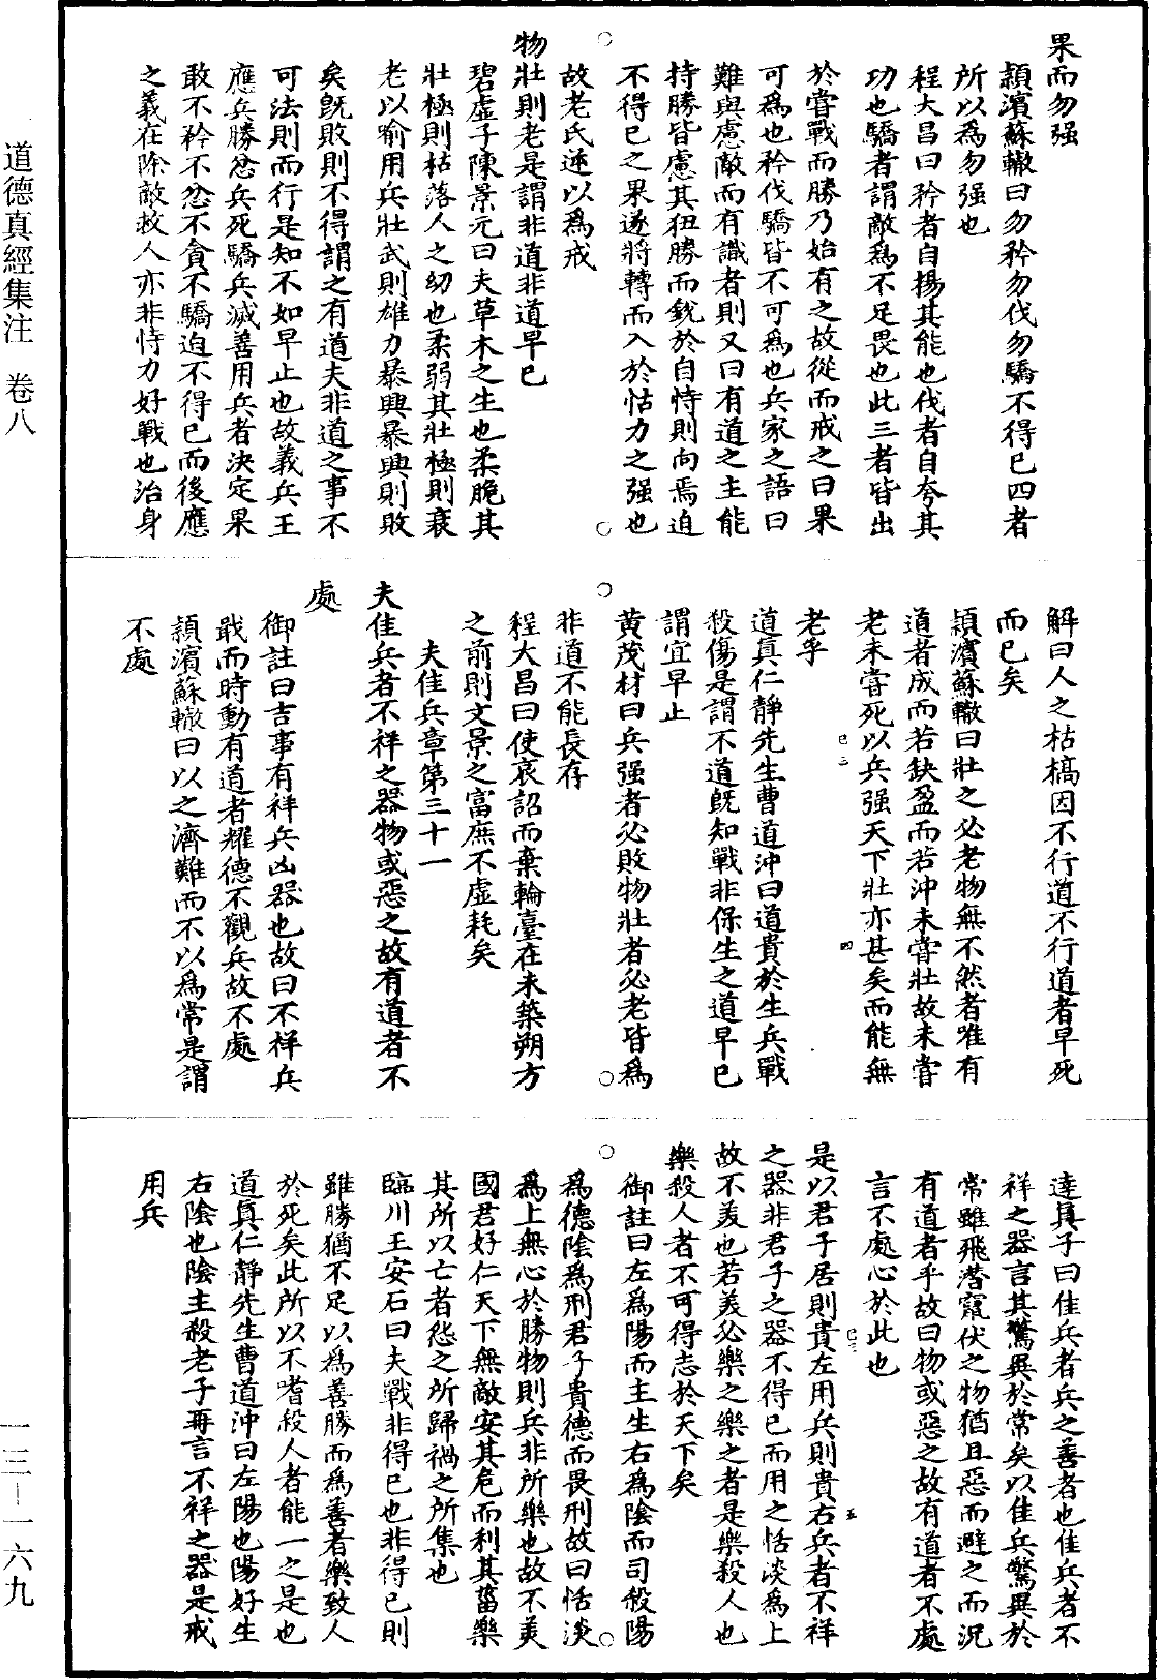 果而勿强
頴濱蘇轍曰勿矜勿伐勿驕不得已四者
所以爲勿强也
程大昌曰矜者自揚其能也伐者自夸其
功也驕者謂敵爲不足畏也此三者皆出
於嘗戰而勝乃始有之故從而戒之曰果
可爲也矜伐驕皆不可爲也兵家之語曰
難與慮敵而有識者則又曰有道之主能
持勝皆慮其狃勝而銳於自恃則向焉迫
不得已之果遂將轉而入於怙力之强也
故老氏遂以爲戒
物壯則老是謂非道非道早已
碧虛子陳景元曰夫草木之生也柔脆其
壯極則枯落人之幼也柔弱其壯極則衰
老以喻用兵壯武則雄力暴興暴興則敗
矣旣敗則不得謂之有道夫非道之事不
可法則而行是知不如早止也故義兵王
應兵勝忿兵死驕兵滅善用兵者決定果
敢不矜不忿不貪不驕迫不得已而後應
之義在除敵救人亦非恃力好戰也治身
解曰人之枯槁因不行道不行道者早死
而已矣
頴濱蘇轍曰壯之必老物無不然者唯有
道者成而若缺盈而若沖未嘗壯故未嘗
老未嘗死以兵强天下壯亦甚矣而能無
老乎
道真仁靜先生曹道沖曰道貴於生兵戰
殺傷是謂不道旣知戰非保生之道早已
謂宜早止
黄茂材曰兵强者必敗物壯者必老皆爲
非道不能長存
程大昌曰使哀詔而棄輪臺在未築朔方
之前則文景之富庶不虛耗矣
夫佳兵章第三十一
夫佳兵者不祥之器物或惡之故有道者不
處
御註曰吉事有祥兵凶器也故曰不祥兵
戢而時動有道者耀德不觀兵故不處
頴濱蘇轍曰以之濟難而不以爲常是謂
不處
達真子曰佳兵者兵之善者也佳兵者不
祥之器言其驚異於常矣以佳兵驚異於
常雖飛潛竄伏之物猶且惡而避之而況
有道者乎故曰物或惡之故有道者不處
言不處心於此也
是以君子居則貴左用兵則貴右兵者不祥
之器非君子之器不得已而用之恬淡爲上
故不美也若美必樂之樂之者是樂殺人也
樂殺人者不可得志於天下矣
御註曰左爲陽而主生右爲陰而司殺陽
爲德陰爲刑君子貴德而畏刑故曰恬淡
爲上無心於勝物則兵非所樂也故不美
國君好仁天下無敵安其危而利其菑樂
其所以亡者怨之所歸禍之所集也
臨川王安石曰夫戰非得已也非得已則
雖勝猶不足以爲善勝而爲善者樂致人
於死矣此所以不嗜殺人者能一之是也
道真仁靜先生曹道沖曰左陽也陽好生
右陰也陰主殺老子再言不祥之器是戒
用兵
道德真經集注　卷八
一三－一六九
已三
四
已三
五